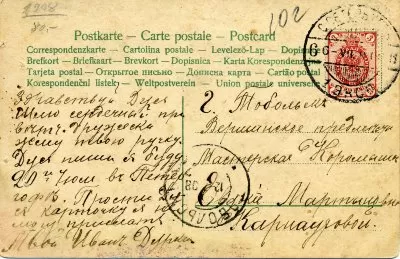 1298
80.-
102
Postkarte — Carte postale — Postcard
Correspondenzkarte — Cartolina postale — Levelező-Lap — Dopisnice
Brefkort — Briefkaart — Brevkort — Dopisnica — Карта
Tarjeta postal — Открытое письмо — Дописна карта — Cartão postal
Korespondenční lístek — Weltpostverein — Union postale universelle
Здравствуй Дуся
Шлю сердечный при
вет. Дружески
жму твою руку.
Дуся пиши я буду
20го Июля въ Петер
гофѣ. Прости
карточку я не
могу прислать
Твой Иванъ
г. Тобольскъ
Вершинское предместье
Мастерская
Мартыновнѣ
Карнауховой.